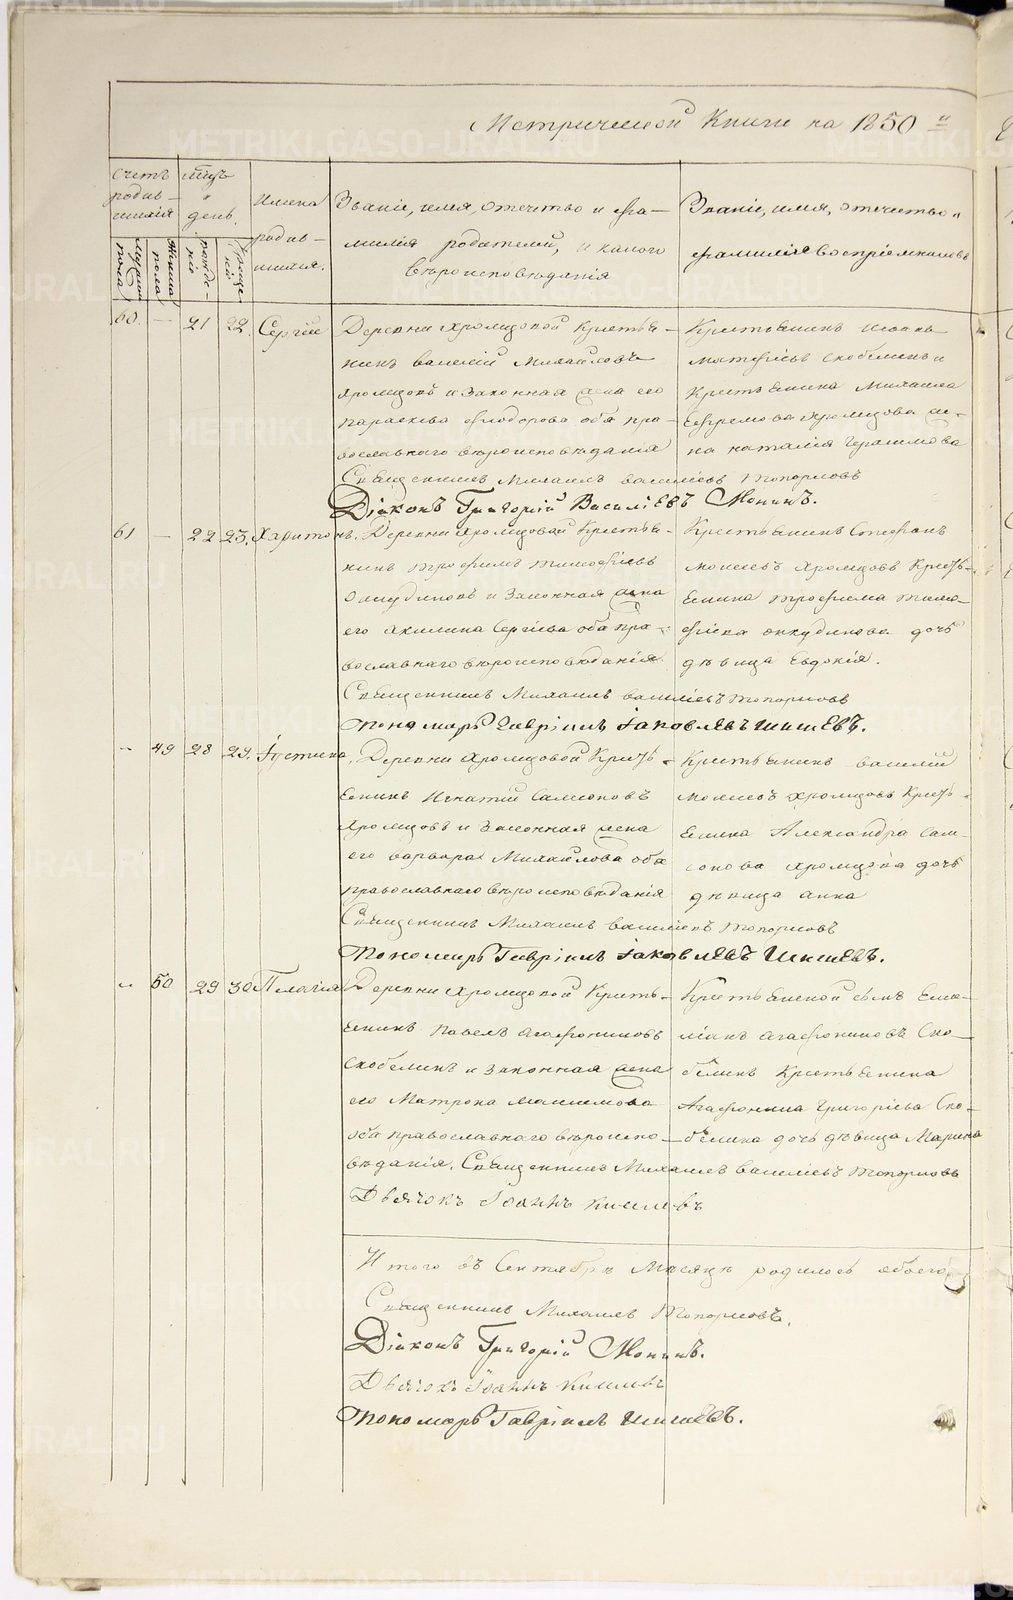 Метрической Книги на 1850 й
Счетъ родив-шихся
Мцъ и день.
Имена родив-шихся.
Званіе, имя, отчество и фа-
милія родителей, и какого
вѣроисповѣданія
Званіе, имя, отчество и
фамилія воспріемниковъ
Мужеска пола
Женска пола
рожде-нія
креще-нія
60. — 21 22. Сергій
Деревни Хромцовой Крестья-
нинъ Василій Михайловъ
Хромцовъ и Законная жена его
Параскева Ѳеодорова оба пра-
вославнаго вѣроисповѣданія
Крестьянинъ Іоаннъ
Матфіевъ Скобелинъ и
Крестьянина Михаила
Ефремова Хромцова же-
на Наталія Герасимова
Священникъ Михаилъ Василіевъ Топорковъ
Діаконъ Григорій Василіевъ Монинъ.
61 — 22 23. Харитонъ.
Деревни Хромцовой Крестья-
нинъ Трофимъ Тимофіевъ
и Законная жена
его Акилина Сергіева оба пра-
вославнаго вѣроисповѣданія.
Крестьянинъ Стефанъ
Моисеевъ Хромцовъ Кресть-
янина Трофима Тимо-
фіева Анкудинова дочь
дѣвица Евдокія.
Священникъ Михаилъ Василіевъ Топорковъ
Пономарь Гавріилъ Іаковлевъ Шишевъ.
— 49 28 29. Іустина.
Деревни Хромцовой Кресть-
янинъ Игнатій Самсоновъ
Хромцовъ и Законная жена
его Варвара Михайлова оба
православнаго вѣроисповѣданія
Крестьянинъ Василій
Моисеевъ Хромцовъ Кресть-
янина Александра Сам-
сонова Хромцова дочь
дѣвица Анна
Священникъ Михаилъ Василіевъ Топорковъ
Пономарь Гавріилъ Іаковлевъ Шишевъ.
— 50 29 30 Пелагія
Деревни Хромцовой Кресть-
янинъ Павелъ Агафониковъ
Скобелинъ и законная жена
его Матрона Максимова
оба православнаго вѣроиспо-
вѣданія.
Крестьянской сынъ Еме-
ліанъ Агафониковъ Ско-
белинъ Крестьянина
Агафоника Григоріева Ско-
белина дочь дѣвица Марина
Священникъ Михаилъ Василіевъ Топорковъ
Дьячокъ Іоаннъ Киселевъ
Итого въ Сентябрѣ Мѣсяцѣ родилось обоего
Священникъ Михаилъ Топорковъ.
Діаконъ Григорій Монинъ.
Дьячокъ Іоаннъ Киселевъ
Пономарь Гавріилъ Шишевъ.
METRIKI.GASO-URAL.RU